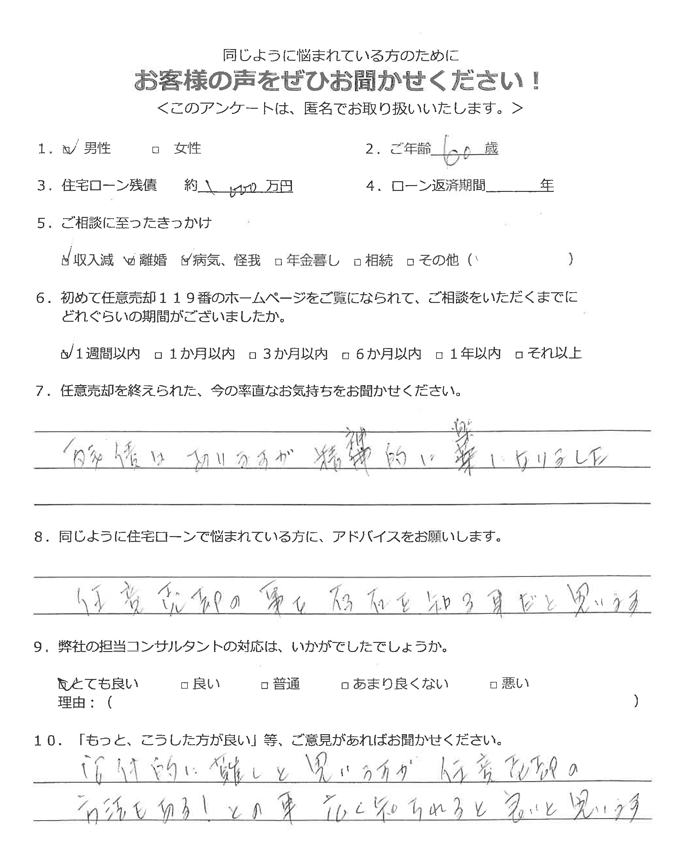 同じように悩まれている方のために
お客様の声をぜひお聞かせください！
＜このアンケートは、匿名でお取り扱いいたします。＞
１．☑ 男性 □ 女性 ２．ご年齢 60 歳
３．住宅ローン残債 約 1,000 万円 ４．ローン返済期間 年
５．ご相談に至ったきっかけ
☑収入減 ☑離婚 ☑病気、怪我 □年金暮し □相続 □その他（ ）
６．初めて任意売却１１９番のホームページをご覧になられて、ご相談をいただくまでに
どれぐらいの期間がございましたか。
☑１週間以内 □１か月以内 □３か月以内 □６か月以内 □１年以内 □それ以上
７．任意売却を終えられた、今の率直なお気持ちをお聞かせください。
残債は ありますが 精神的に 楽になりました
８．同じように住宅ローンで悩まれている方に、アドバイスをお願いします。
任意売却の事を 存在を 知る事だと思います
９．弊社の担当コンサルタントの対応は、いかがでしたでしょうか。
☑とても良い □良い □普通 □あまり良くない □悪い
理由：（ ）
１０．「もっと、こうした方が良い」等、ご意見があればお聞かせください。
的に 難しと 思いますが 任意売却の
方法も ある！との事 広く知られると 良いと思います